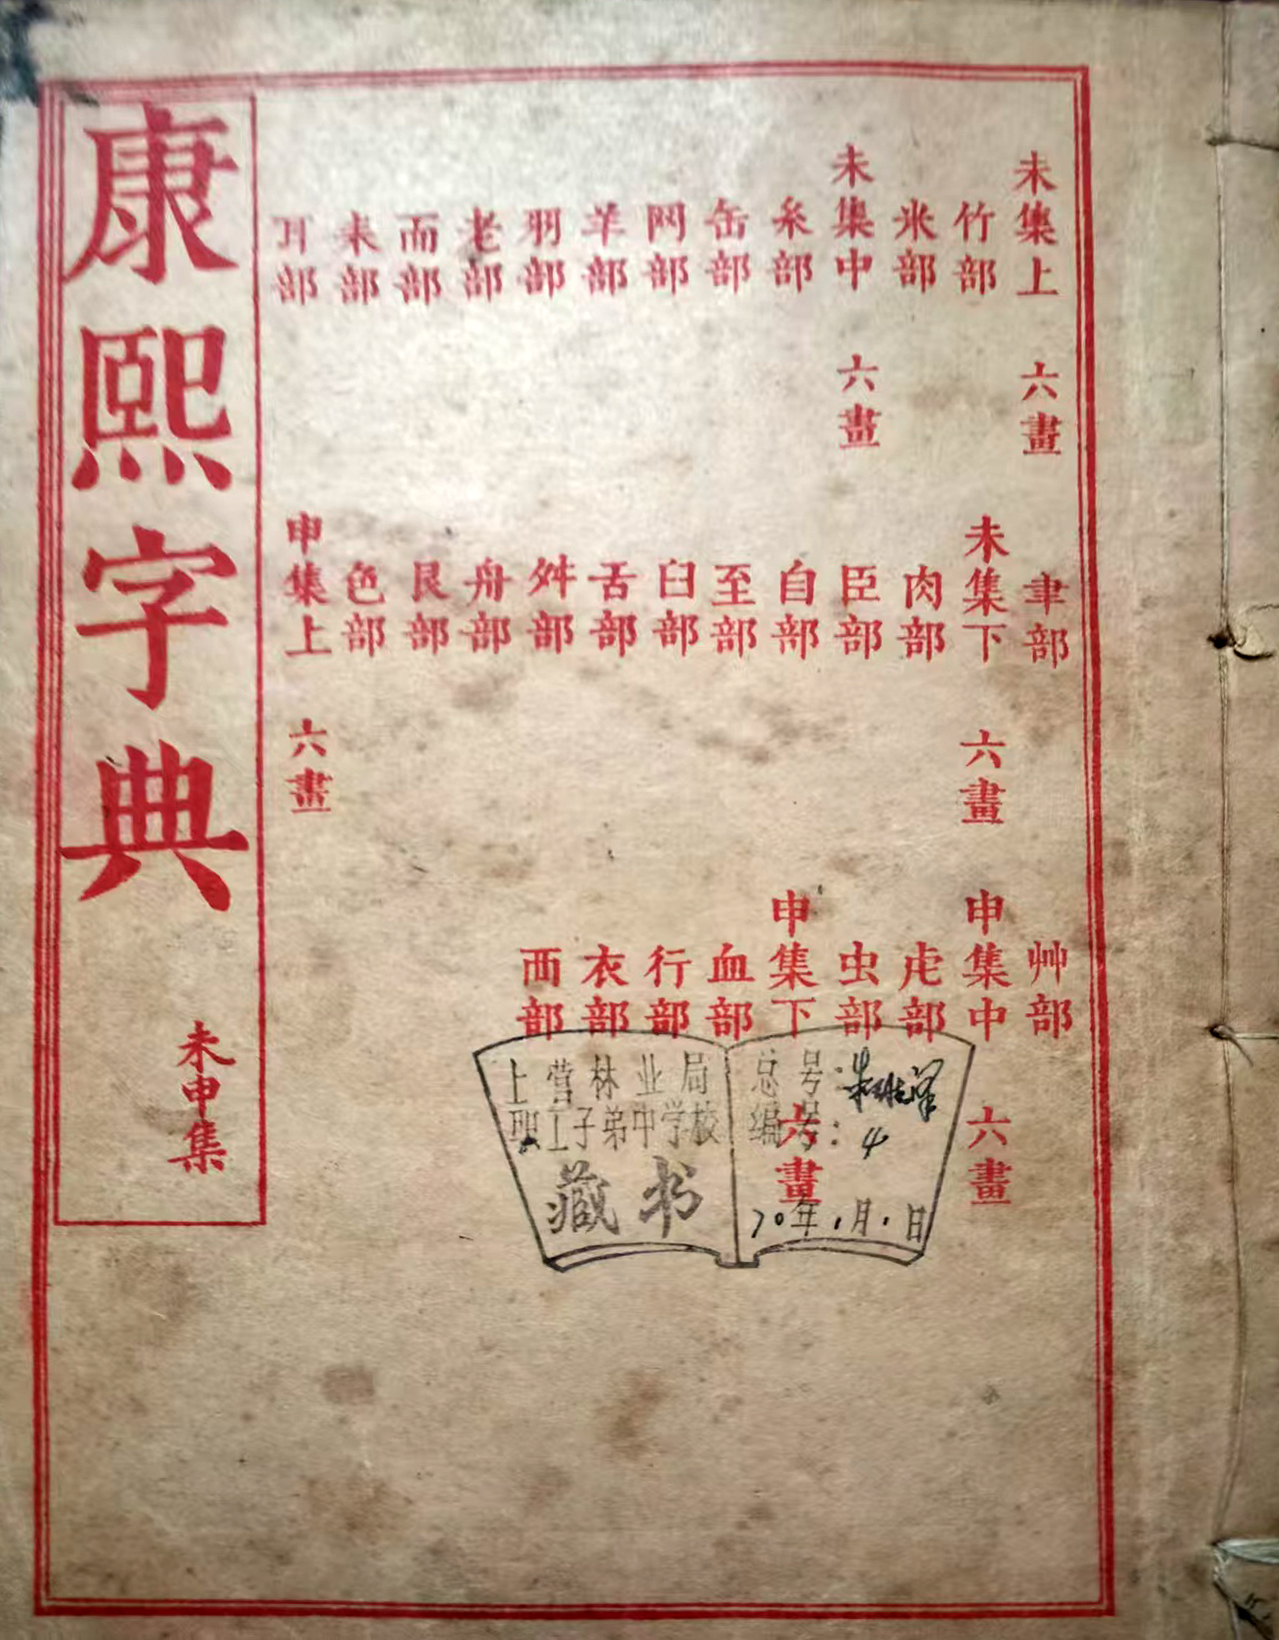 康熙字典
未申集
未集上 六畫
竹部
米部
未集中 六畫
糸部
缶部
网部
羊部
羽部
老部
而部
耒部
耳部
聿部
未集下 六畫
肉部
臣部
自部
至部
臼部
舌部
舛部
舟部
艮部
色部
申集上 六畫
艸部
申集中 六畫
虍部
虫部
申集下 六畫
血部
行部
衣部
襾部
上营林业局
职工子弟中学校
藏书
总号:
编号: 4
70年1月1日